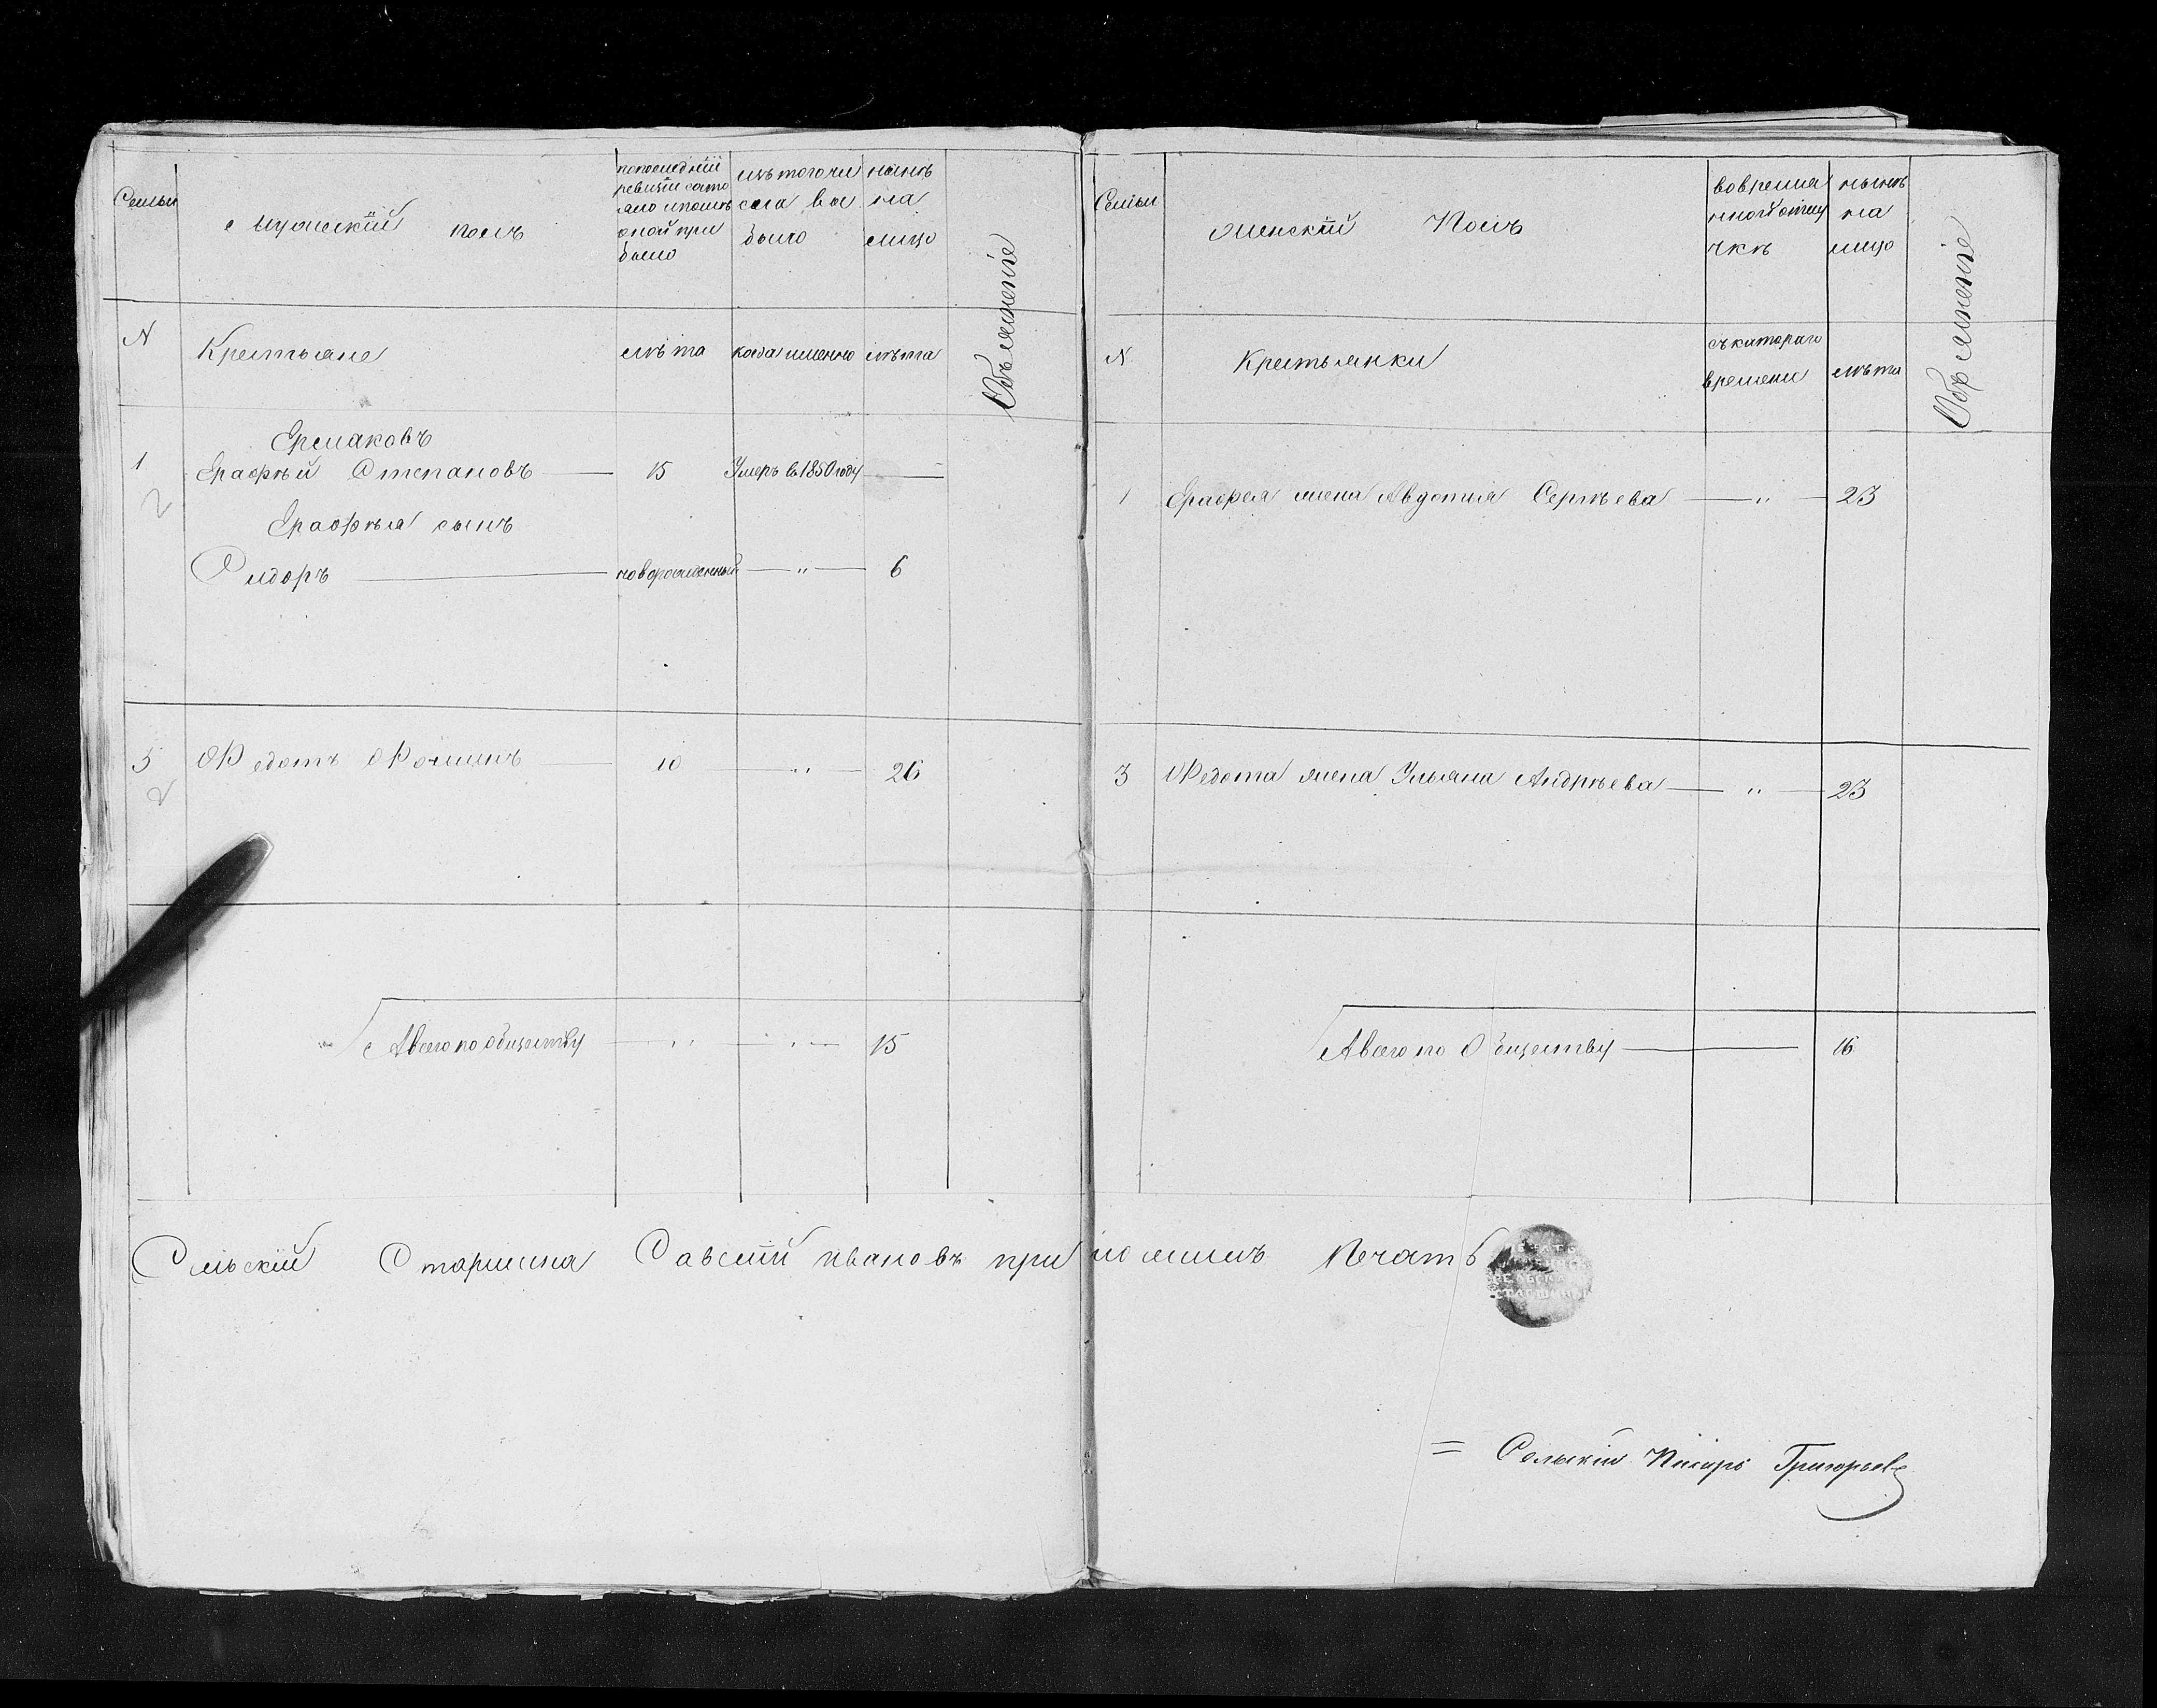 Семьи
Мужескій полъ
попоследній
ревизіи состо
яло ипослѣ
оной при
было
изътогочи
сла вы
было
нынѣ
на
лицо
Объясненіе
N
Крестьяне
лѣта
когда именно
лѣта
Ермаковъ
1
Ерафѣй Степановъ
15
Умеръ в 1850 году
2
Ерафѣя сынъ
Сидоръ
новорожденный
"
6
3
Федотъ Фоминъ
10
"
26
2
Авсего по обществу
"
"
15
Семьи
Женскій Полъ
вовремя
нной отлу
чкѣ
нынѣ
на
лицо
Объясненіе
N
Крестьянки
съкатораго
времени
лѣта
1
Ерафея жена Авдотия Сергѣева
"
23
3
Федота жена Ульяна Андрѣева
"
23
Авсего по Обществу
16
Сельскій Старшина Савелій Ивановъ приложилъ Печать
= Сельскій Писарь Григорьевъ